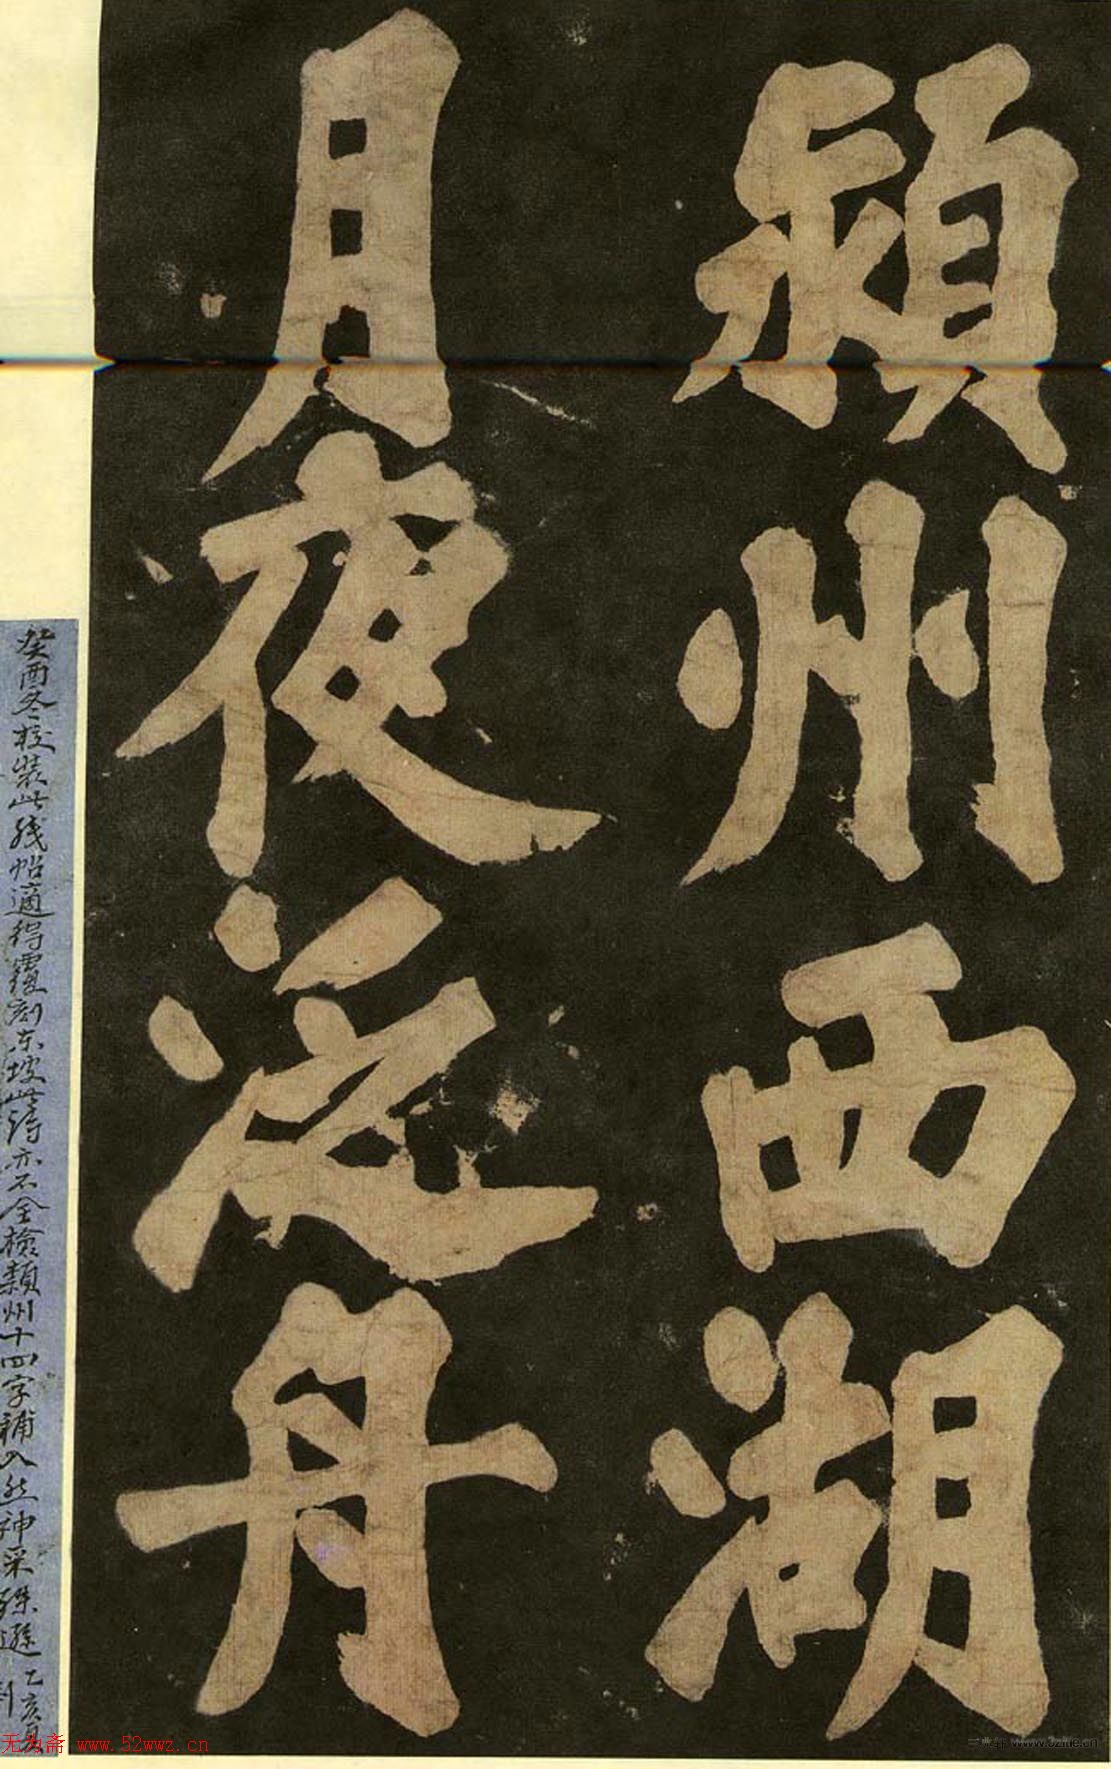 潁州西湖
月夜泛舟
癸酉冬校裝此殘帖適得覆刻東坡此詩亦不全檢潁州十四字補入然神采殊遜 乙亥夏
无为斋 www.52wwz.cn